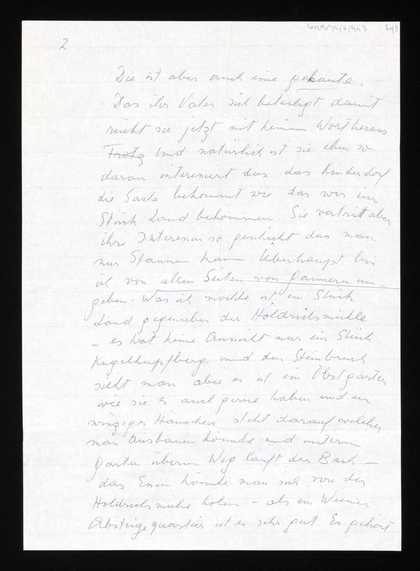 2
Die ist aber auch eine gekaute.
Das ihr Vater sich beteiligt damit
rückt sie jetzt mit keinem Wort heraus
Trotz Und natürlich ist sie eben so
daran interessiert das das Kinderdorf
die Sache bekommt wie das wir ein
Stück Land bekommen. Sie vertritt aber
ihr Interesse so geschickt das man
nur Staunen kann. Überhaupt bin
ich von allen Seiten von Gaunern um-
geben. Was ich möchte ist ein Stück
Land gegenüber der Höldrichsmühle
– es hat keine Aussicht nur ein Stück
Kugelhupfberg und den Steinbruch
sieht man aber es ist ein Obstgarten
wie sie es auch gerne haben und ein
winziges Häuschen steht darauf welches
man Ausbauen könnte und unterm
Garten überm Weg läuft der Bach –
das Essen könnte man sich von der
Höldrichsmühle holen – als ein Wiener
Absteigequartier ist es sehr gut. Es gehört